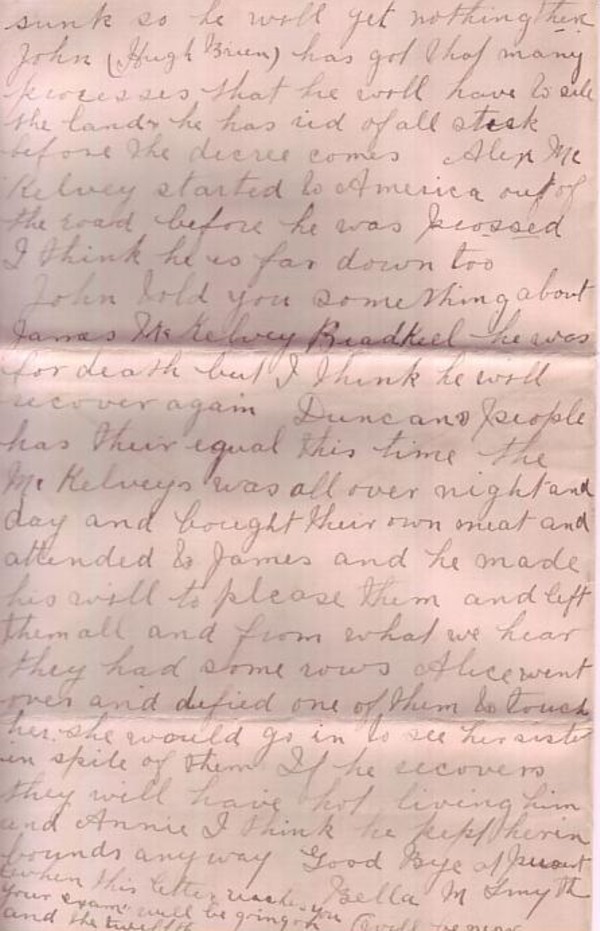 sunk so he will get nothing there
John (Hugh Brien) has got that many
processes that he will have to sell
the land & he has rid of all stock
before the decree comes Alex Mc
Kelvey started to America out of
the road before he was prossed
I think he is far down too
John told you something about
James Mc Kelvey he was
for death but I think he will
recover again Duncans people
has their equal this time the
Mc Kelveys was all over night and
day and bought their own meat and
attended to James and he made
his will to please them and left
them all and from what we hear
they had some rows Alice went
over and defied one of them to touch
her. she would go in to see her sister
in spite of them If he recovers
they will have hot living him
and Annie I think he kept her in
bounds anyway Good Bye at present
Bella M Smyth
when this letter reaches you
your exams will be going on
and the twelfth